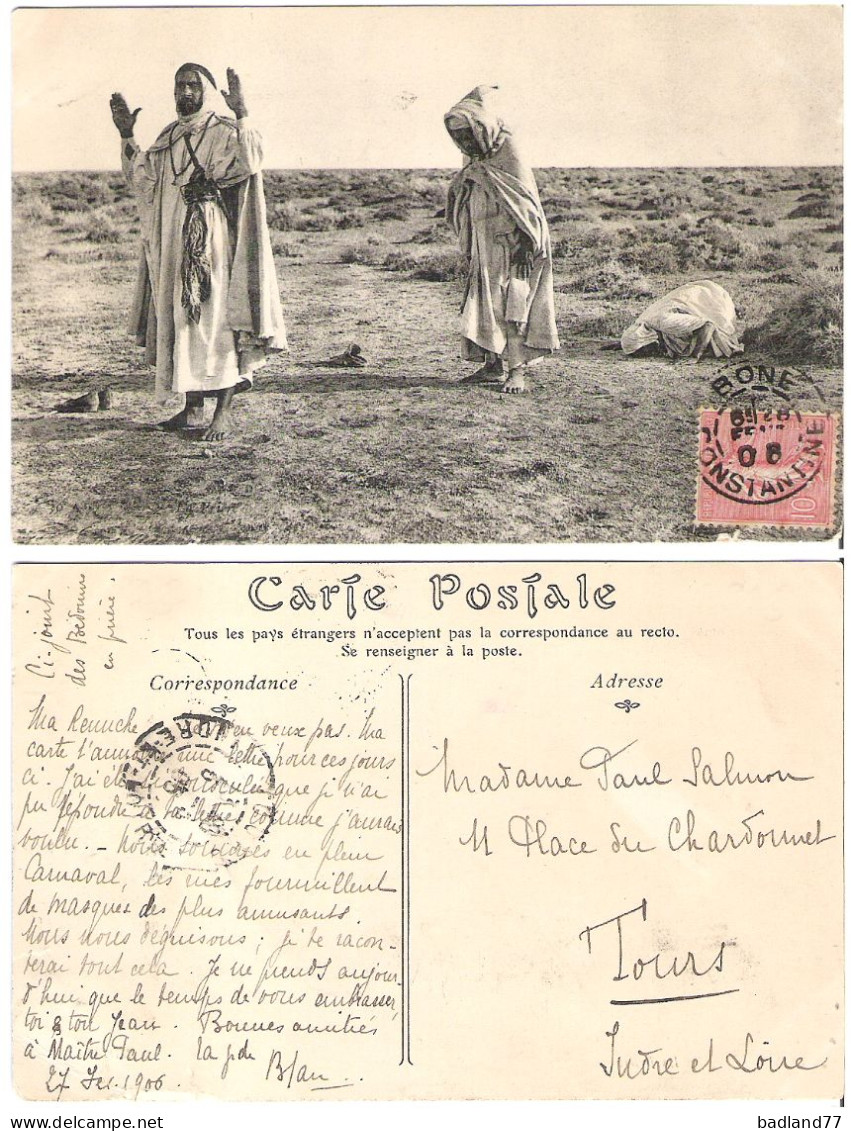 BONE
CONSTANTINE
10
Carte Postale
Tous les pays étrangers n'acceptent pas la correspondance au recto.
Se renseigner à la poste.
Ci-joint
des Bédouins
en prière.
Correspondance
Ma en veux pas. Ma
carte une lettre pour ces jours
ci. J'ai été que je n'ai
pu répondre à ta lettre comme j'aurais
voulu. - Nous en plein
Carnaval, les rues fourmillent
de masques des plus amusants.
Nous nous déguisons; je te racon-
terai tout cela. Je ne prends aujour-
d'hui que le temps de vous embrasser,
toi & ton Jean. Bonnes amitiés
à Maître Paul. Ta
27 1906
Adresse
Madame Paul Salmon
11 Place du Chardonnet
Tours
Indre et Loire
badland77